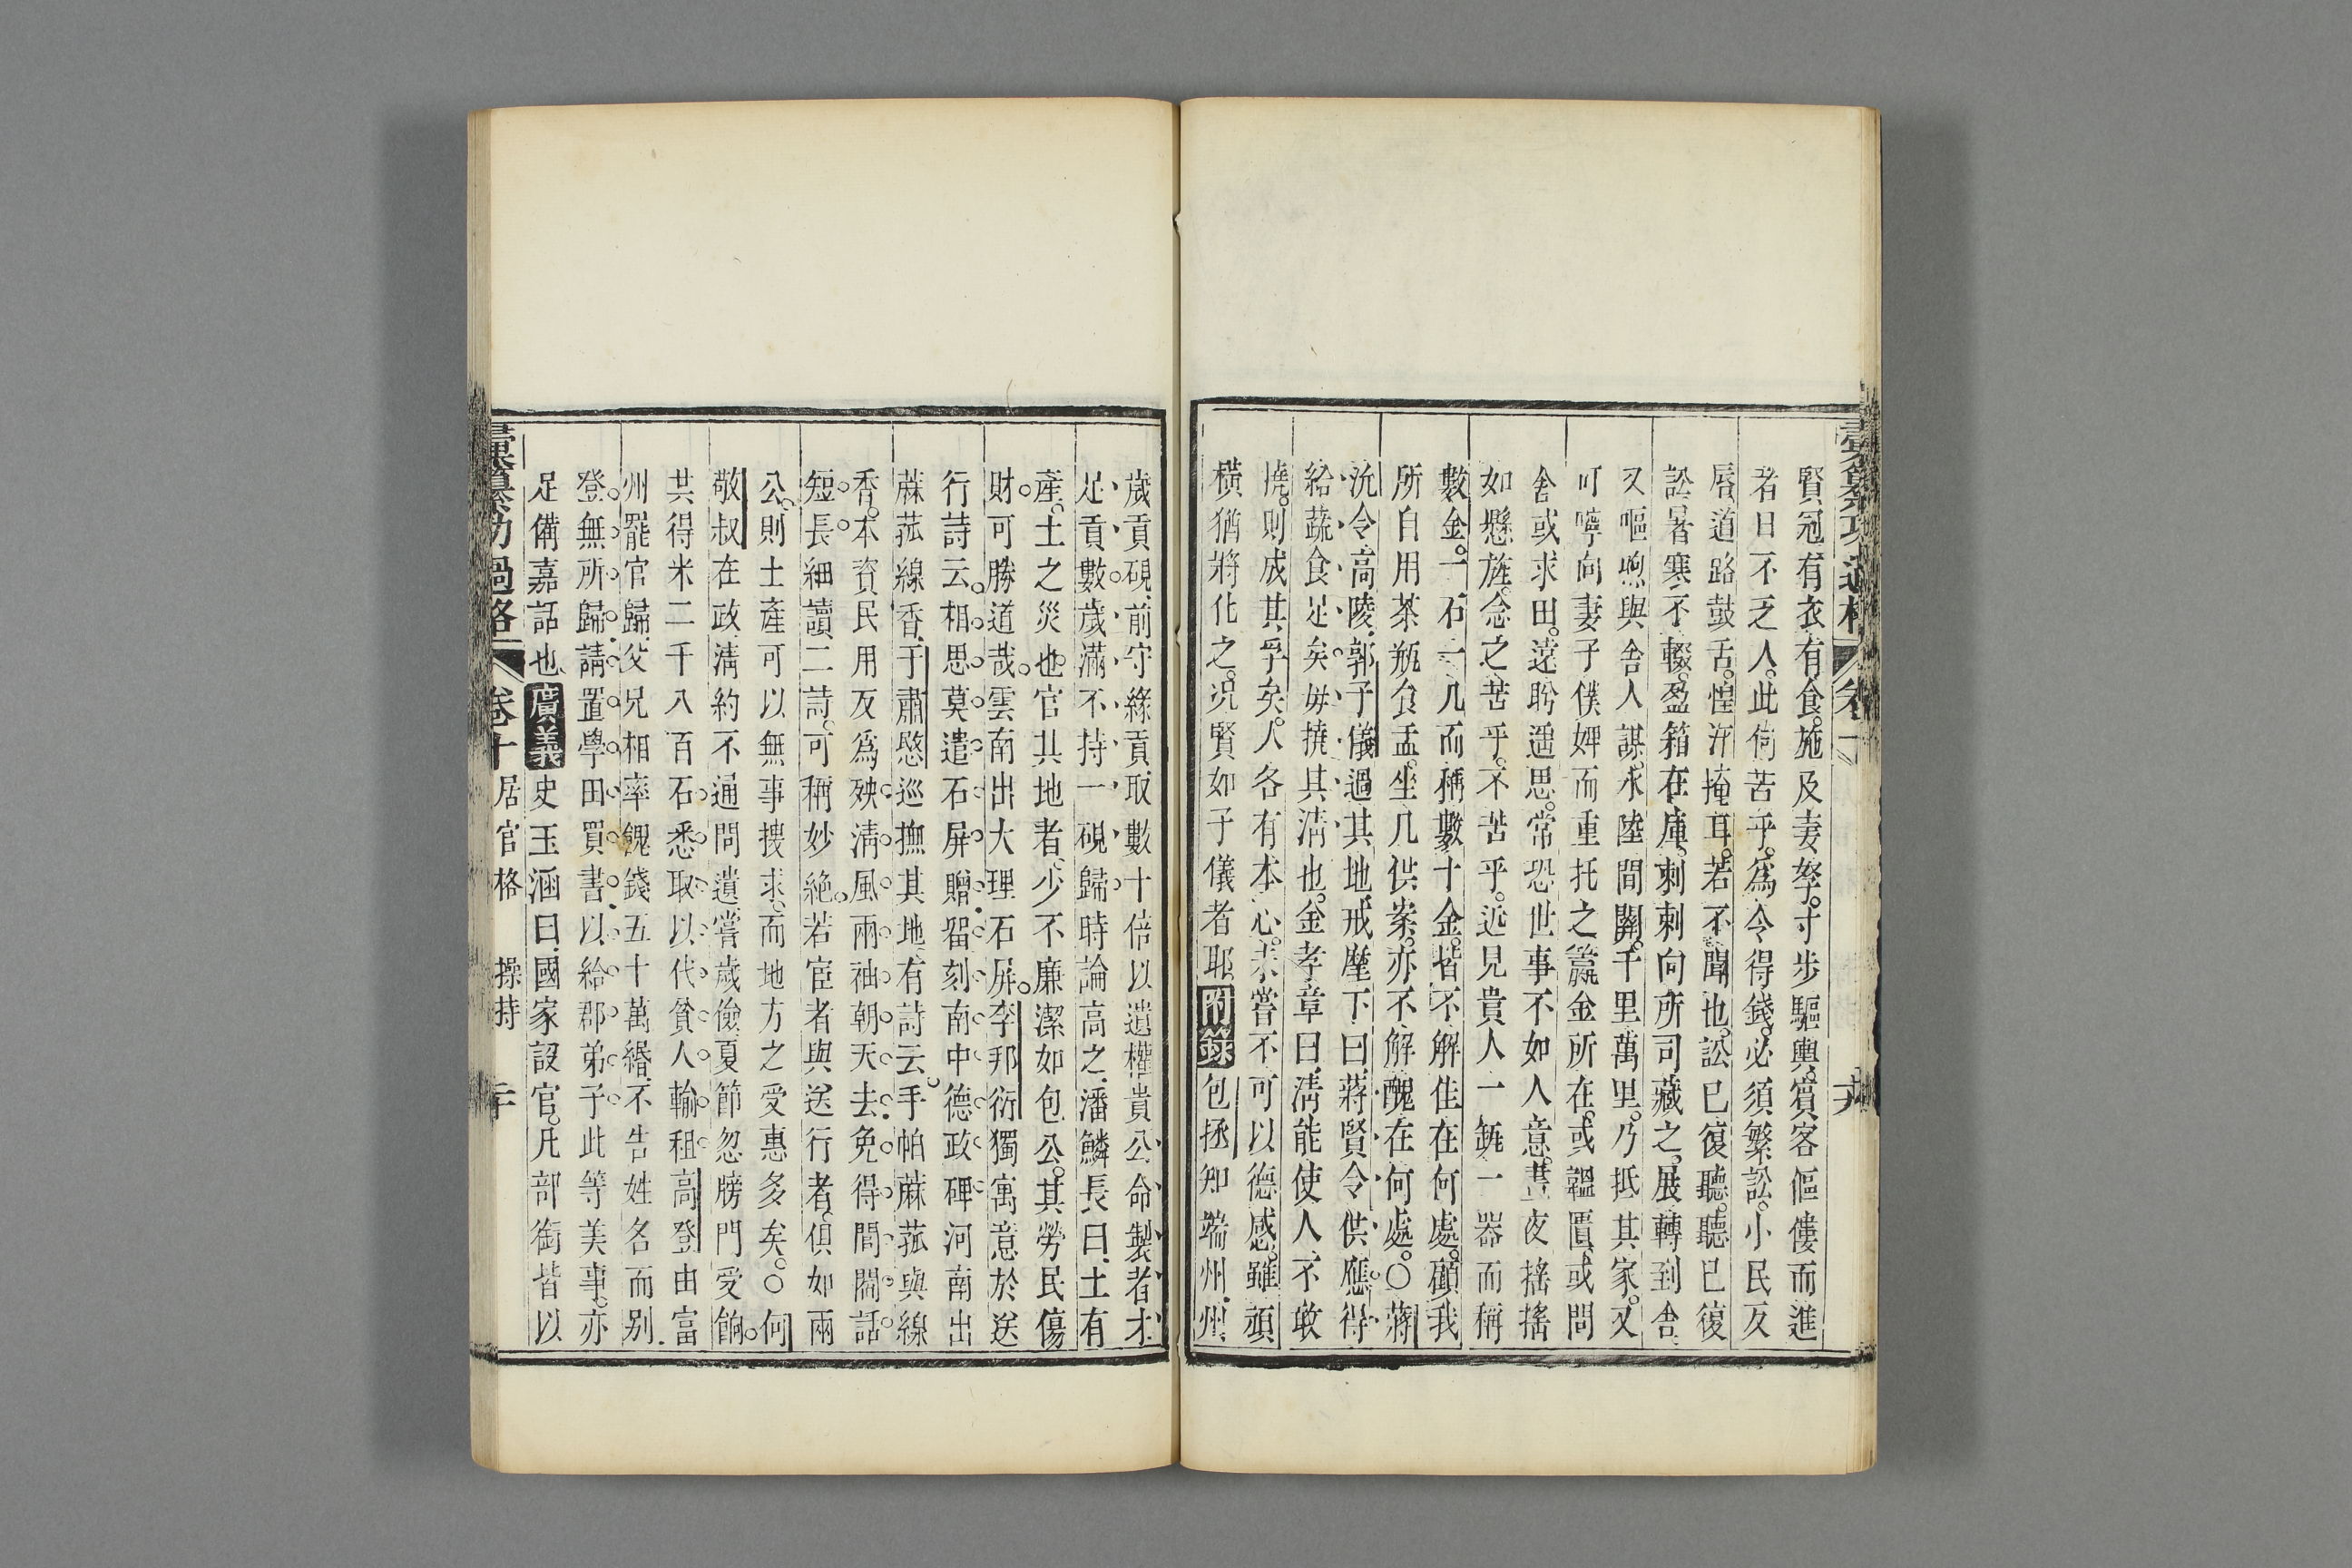 賢冠有衣有食。施及妻孥。寸步驅輿。賓客傴僂而進
者日不乏人。此倘苦乎。爲令得錢。必須繁訟。小民反
唇道路鼓舌。惶汗掩耳。若不聞也。訟已復聽。聽已復
訟。暑寒不輟。盈箱在庫。刺刺向所司藏之。展轉到舍
又嘔喣與舍人謀。求陸間關。千里萬里。乃抵其家。又
叮嚀向妻子僕婢而重托之籯金所在。或韞匱或問
舍或求田。遠盻遥思。常恐世事不如人意。晝夜搖搖
如懸旌。念之苦乎。不苦乎。近見貴人一甌一器而稱
數金。一石一几而稱數十金。皆不解佳在何處。顧我
所自用茶瓶食盂。坐几供案。亦不解醜在何處。○蔣
沇令高陵。郭子儀過其地。戒麾下曰。蔣賢令供應得
給蔬食足矣。毋撓其淸也。金孝章曰。淸能使人不敢
撓。則成其孚矣。人各有本心。未嘗不可以德感。雖頑
橫猶將化之。况賢如子儀者耶。附錄包拯知端州。州
歲貢硯。前守緣貢取數十倍以遺權貴公命製者才
足貢數。歲滿不持一硯歸。時論高之。潘鱗長曰。土有
產。土之災也。官其地者。少不廉潔如包公。其勞民傷
財。可勝道哉。雲南出大理石屏。李邦衍獨寓意於送
行詩云。相思莫遣石屏贈。畱刻南中德政碑。河南出
蔴菰線香。于肅愍巡撫其地。有詩云。手帕蔴菰與線
香。本資民用反爲殃。淸風兩袖朝天去。免得閭閻話
短長。細讀二詩。可稱妙絶。若宦者與送行者。俱如兩
公。則土產可以無事搜求。而地方之受惠多矣。○何
敬叔在政淸約不通問遺。嘗歲儉夏節忽牓門受餉。
共得米二千八百石。悉取以代貧人輸租。高登由富
州罷官歸。父兄相率餽錢五十萬緡。不告姓名而别
登無所歸。請置學田買書。以給郡弟子。此等美事。亦
足備嘉話也。廣義史玉涵曰。國家設官。凡部銜皆以
彙纂功過格 卷十 居官格 操持 二十